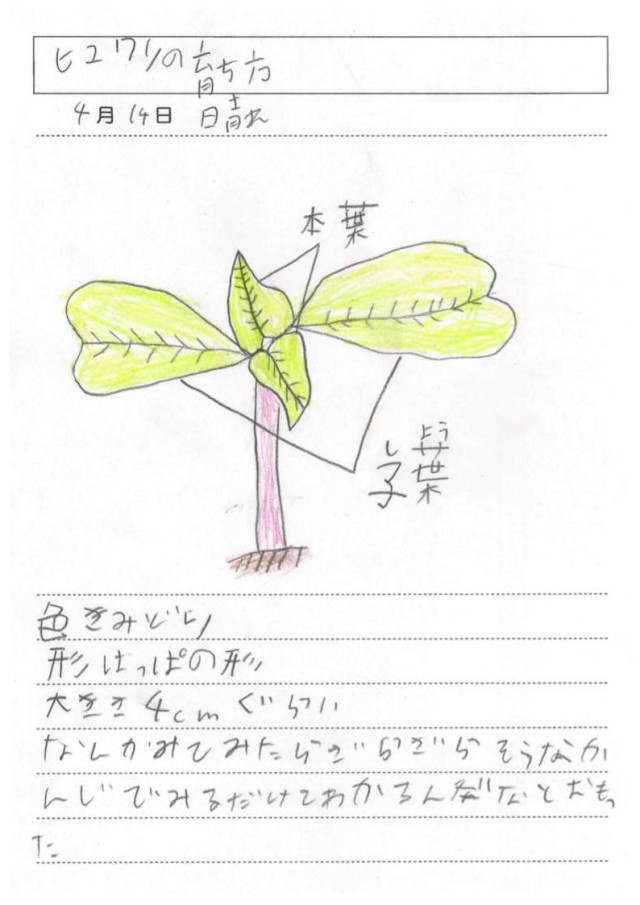 ヒマワリの育ち方
4月14日 晴れ
本葉
しよう
子葉
色きみどり
形はっぱの形
大きさ4cmぐらい
なんかみてみたらざらざらそうなか
んじでみるだけでわかるんだなとおもっ
た